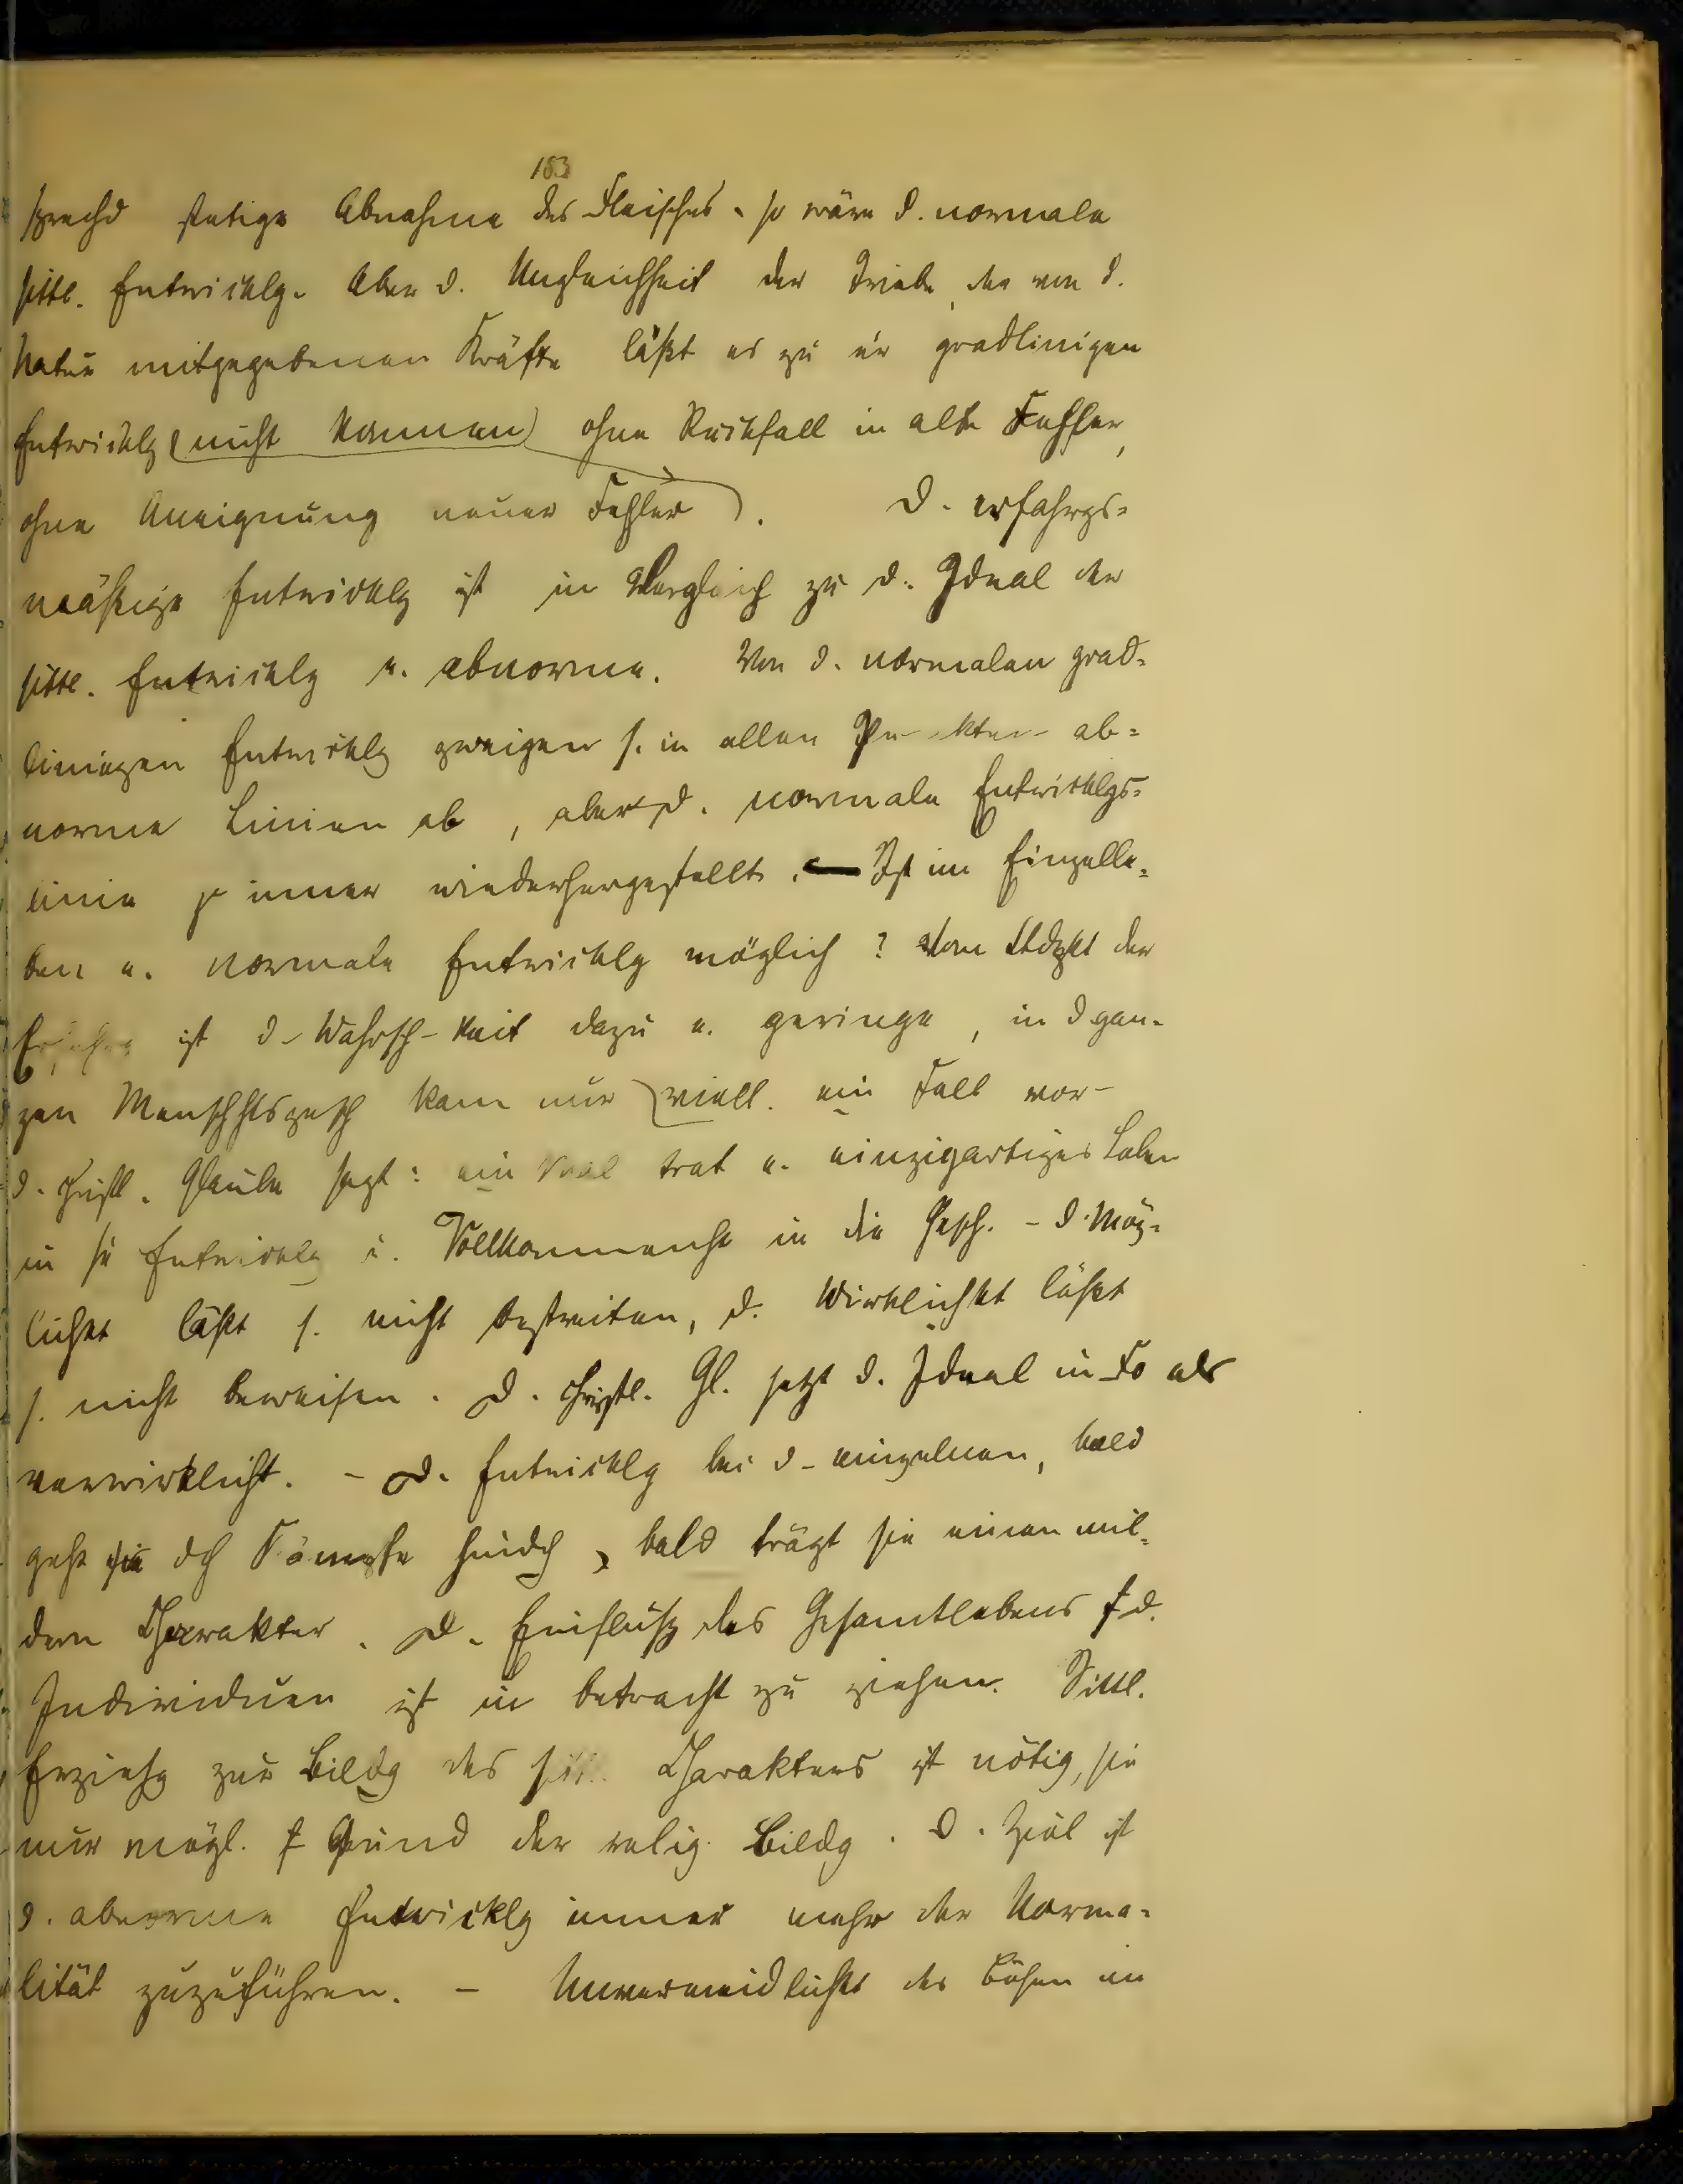 183
sprechd stetige Abnahme des Fleisches. so wäre d. normale
sittl. Entwicklg. Aber d. Ungleichheit der Triebe, der von d.
Natur mitgegebenen Kräfte läßt es zu er gradlinigen
Entwicklg (nicht kommen) ohne Rückfall in alte Fehler,
ohne Aneignung neuer Fehler). D. erfahrgs-
mäßige Entwicklg ist in Vergleich zu d. Ideal der
sittl. Entwicklg e. abnorme. Von d. normalen grad-
linigen Entwicklg zweigen s. in allen Punkten ab-
norme Linien ab, aber d. normale Entwicklgs-
linie immer wiederhergestellt. — Ist im Einzelle-
ben e. normale Entwicklg möglich? Vom Stdpkt der
Erfahrg ist d. Wahrsch-keit dazu e. geringe, in d gan-
zen Menschhtsgesch kam nur viell. ein Fall vor-
d. christl. Glaube sagt: ein Mal trat e. einzigartiges Leben
in sr Entwicklg i. Vollkommenht in die Gesch. - d. Mög-
lichkt läßt s. nicht bestreiten, d. Wirklichkt läßt
s. nicht beweisen. D. christl. Gl. setzt d. Ideal in als
verwirklicht. - D. Entwicklg bei d. einzelnen, bald
geht sie dch Kämpfe hindch, bald trägt sie einen mil-
dern Charakter. D. Einfluß des Gesamtlebens f d.
Individuen ist in betracht zu ziehen. Sittl.
Erziehg zur Bildg des sittl. Charakters ist nötig, sie
nur mögl. f Grund der relig. Bildg. D. Ziel ist
d. abnorme Entwicklg immer mehr der Norma-
lität zuzuführen. - Unvermeidlichkt des Bösen im